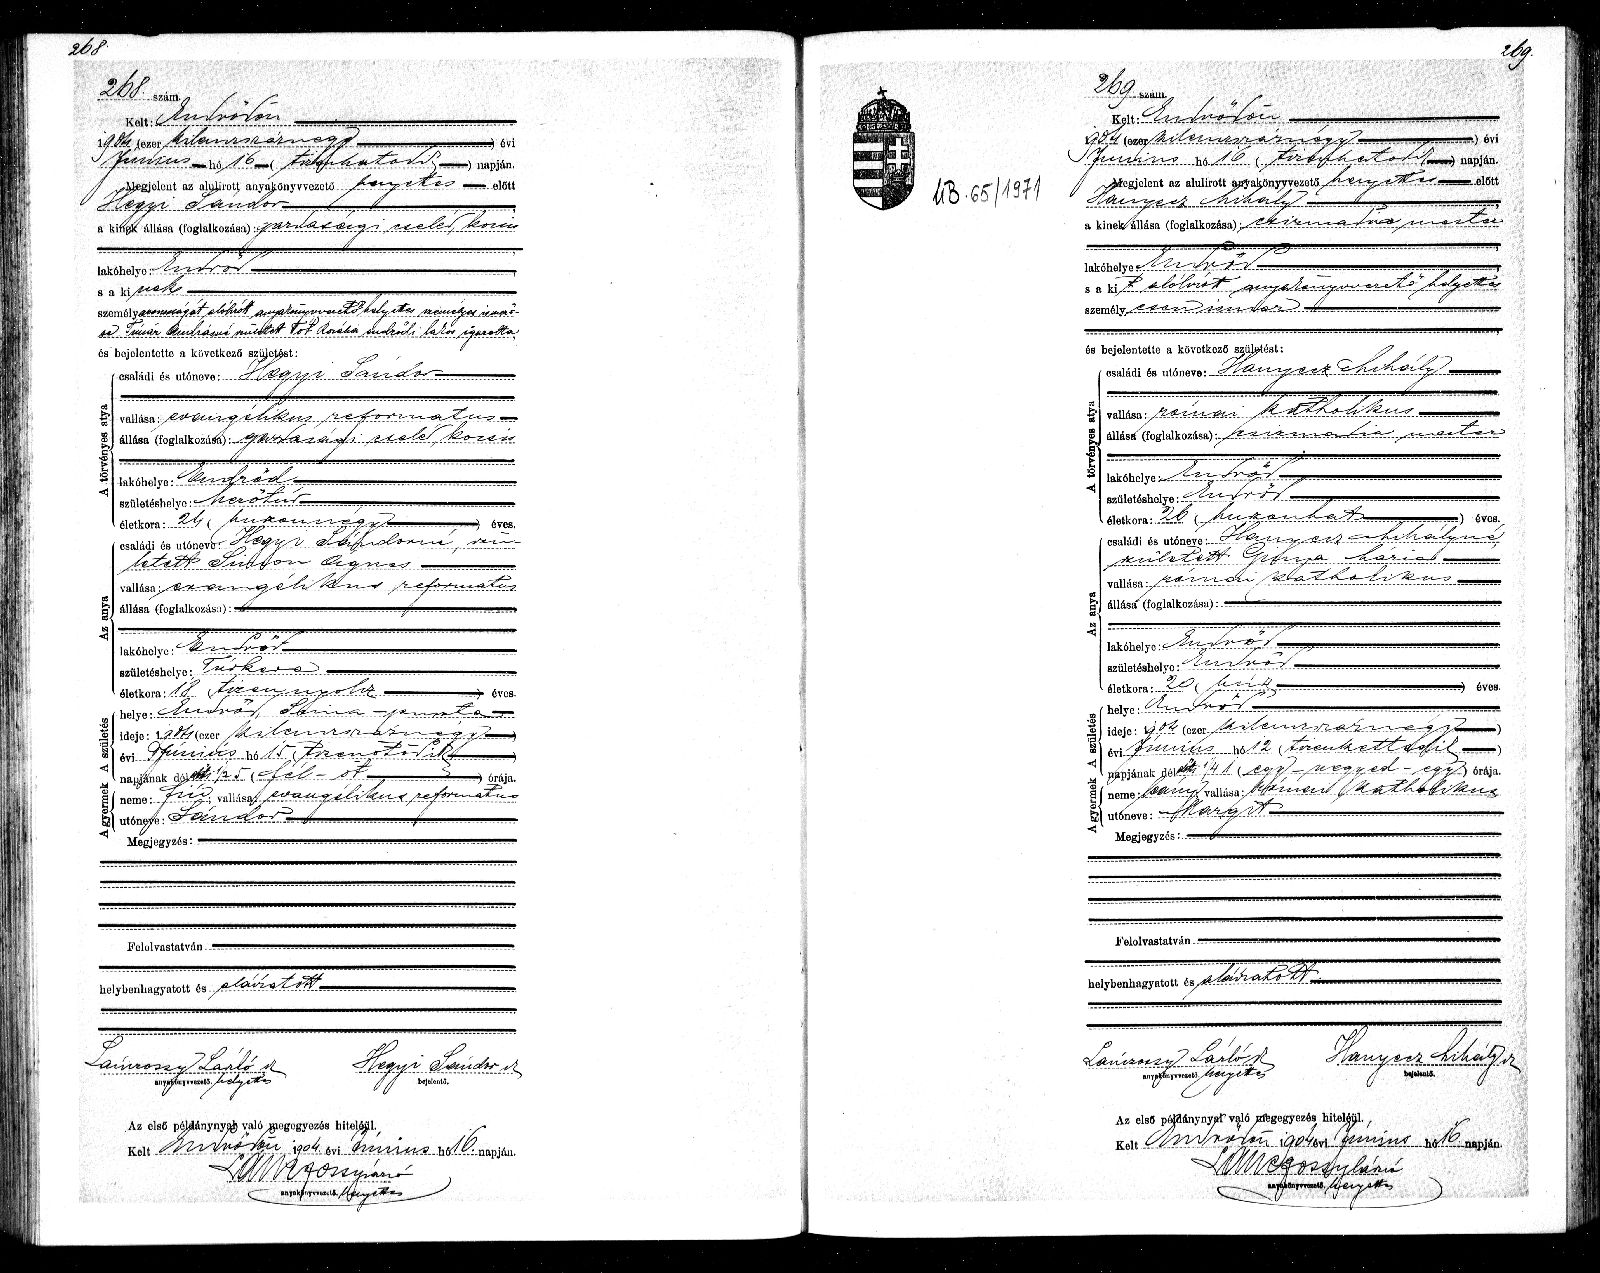 268.
268. szám.
Kelt: Endrődön
1904 (ezer kilencszáznégy) évi
Június hó 16 (tizenhatodik) napján.
Megjelent az alulirott anyakönyvvezető helyettes előtt
Hegyi Sándor
a kinek állása (foglalkozása): gazdasági cseléd, kocsis
lakóhelye: Endrőd
s a ki nek
személyazonosságát alólírott anyakönyvvezető helyettes személyes ismerő-
se Timár Andrásné született Tót Rozália endrődi lakos igazolta,
és bejelentette a következő születést:
A törvényes atya
családi és utóneve: Hegyi Sándor
vallása: evangélikus reformatus
állása (foglalkozása): gazdasági cseléd, kocsis
lakóhelye: Endrőd
születéshelye: Mezőtúr
életkora: 24 (huszonnégy) éves.
Az anya
családi és utóneve: Hegyi Sándorné, szü-
letett Simon Ágnes
vallása: evangélikus reformatus
állása (foglalkozása):
lakóhelye: Endrőd
születéshelye: Túrkeve
életkora: 18 (tizennyolc) éves.
A születés
helye: Endrőd, -puszta
ideje: 1904 (ezer kilencszáznégy)
évi Június hó 15 (tizenötödik)
napjának dél 1/2 5 (fél-öt) órája.
A gyermek
neme: fiú; vallása: evangélikus reformatus
utóneve: Sándor
Megjegyzés:
Felolvastatván
helybenhagyatott és aláiratott
Lánczossy László sk Hegyi Sándor sk
anyakönyvvezető. helyettes bejelentő.
Az első példánynyal való megegyezés hiteléül.
Kelt Endrődön 1904 évi Június hó 16. napján.
Lánczossy László
anyakönyvvezető. helyettes
269.
HB. 65/1971
269 szám.
Kelt: Endrődön
1904 (ezer kilencszáznégy) évi
Június hó 16 (tizenhatodik) napján.
Megjelent az alulirott anyakönyvvezető helyettes előtt
Hanyecz Mihály
a kinek állása (foglalkozása): csizmadia mester
lakóhelye: Endrőd
s a ki t alólírott anyakönyvvezető helyettes
személy esen ismer
és bejelentette a következő születést:
A törvényes atya
családi és utóneve: Hanyecz Mihály
vallása: római katholikus
állása (foglalkozása): csizmadia mester
lakóhelye: Endrőd
születéshelye: Endrőd
életkora: 26 (huszonhat) éves.
Az anya
családi és utóneve: Hanyecz Mihályné,
született Gonya Mária
vallása: római katholikus
állása (foglalkozása):
lakóhelye: Endrőd
születéshelye: Endrőd
életkora: 20 (húsz) éves.
A születés
helye: Endrőd
ideje: 1904 (ezer kilencszáznégy)
évi Június hó 12 (tizenkettedik)
napjának dél 1/4 1 (egy-negyed-egy) órája.
A gyermek
neme: leány vallása: római katholikus
utóneve: Margit
Megjegyzés:
Felolvastatván
helybenhagyatott és aláiratott.
Lánczossy László sk Hanyecz Mihály sk
anyakönyvvezető. helyettes bejelentő.
Az első példánynyal való megegyezés hiteléül.
Kelt Endrődön 1904 évi Június hó 16. napján.
Lánczossy László
anyakönyvvezető. helyettes